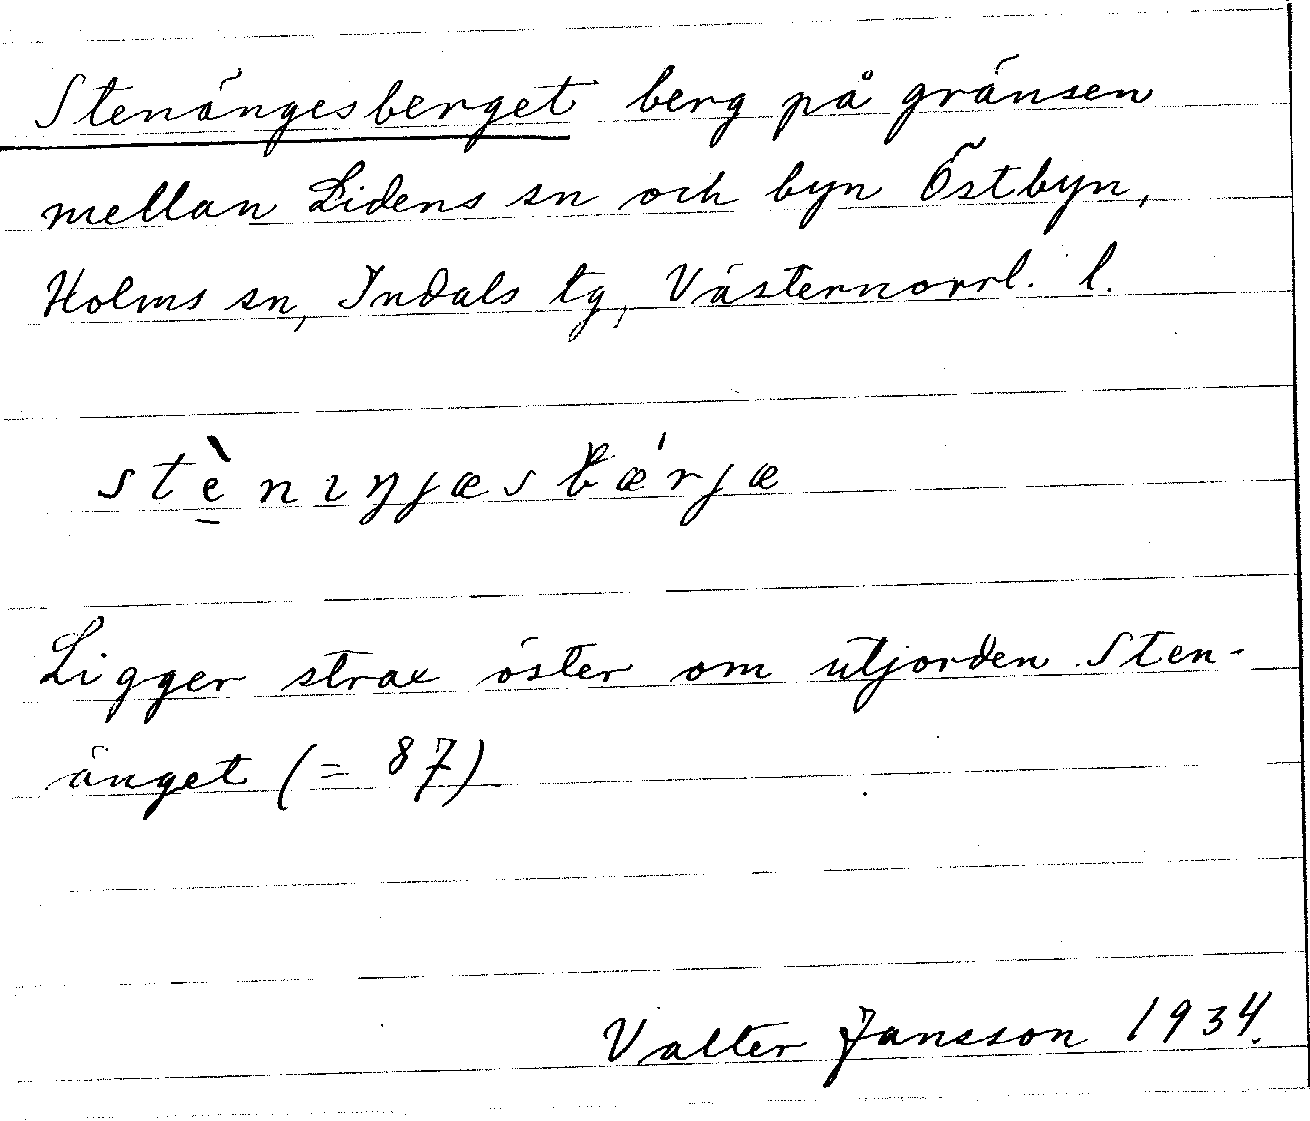 Stenängesberget berg på gränsen
mellan Lidens sn och byn Östbyn,
Holms sn, Indals tg, Västernorrl. l.
stè̠nıŋjæsbæ'rjæ
Ligger strax öster om utjorden Sten-
änget (= 87)
Valter Jansson 1934.